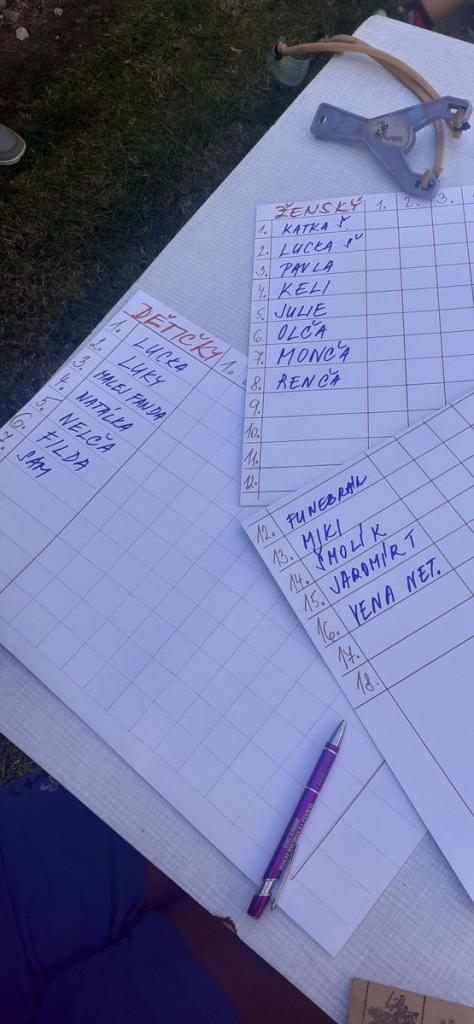 ŽENSKÝ 1. 2. 3.
1. KATKA Š
2. LUCKA SŠ
3. PAVLA
4. KELI
5. JULIE
6. OLČA
7. MONČA
8. RENČA
9.
10.
11.
12.
DĚTIČKY 1.
1. LUCKA
2. LUKY
3. MALEJ FANDA
4. NATÁLKA
5. NELČA
6. FILDA
7. SAM
12. FUNEBRÁK
13. MIKI
14. SMOLÍK
15. JAROMÍR T
16. VENA NET.
17.
18.